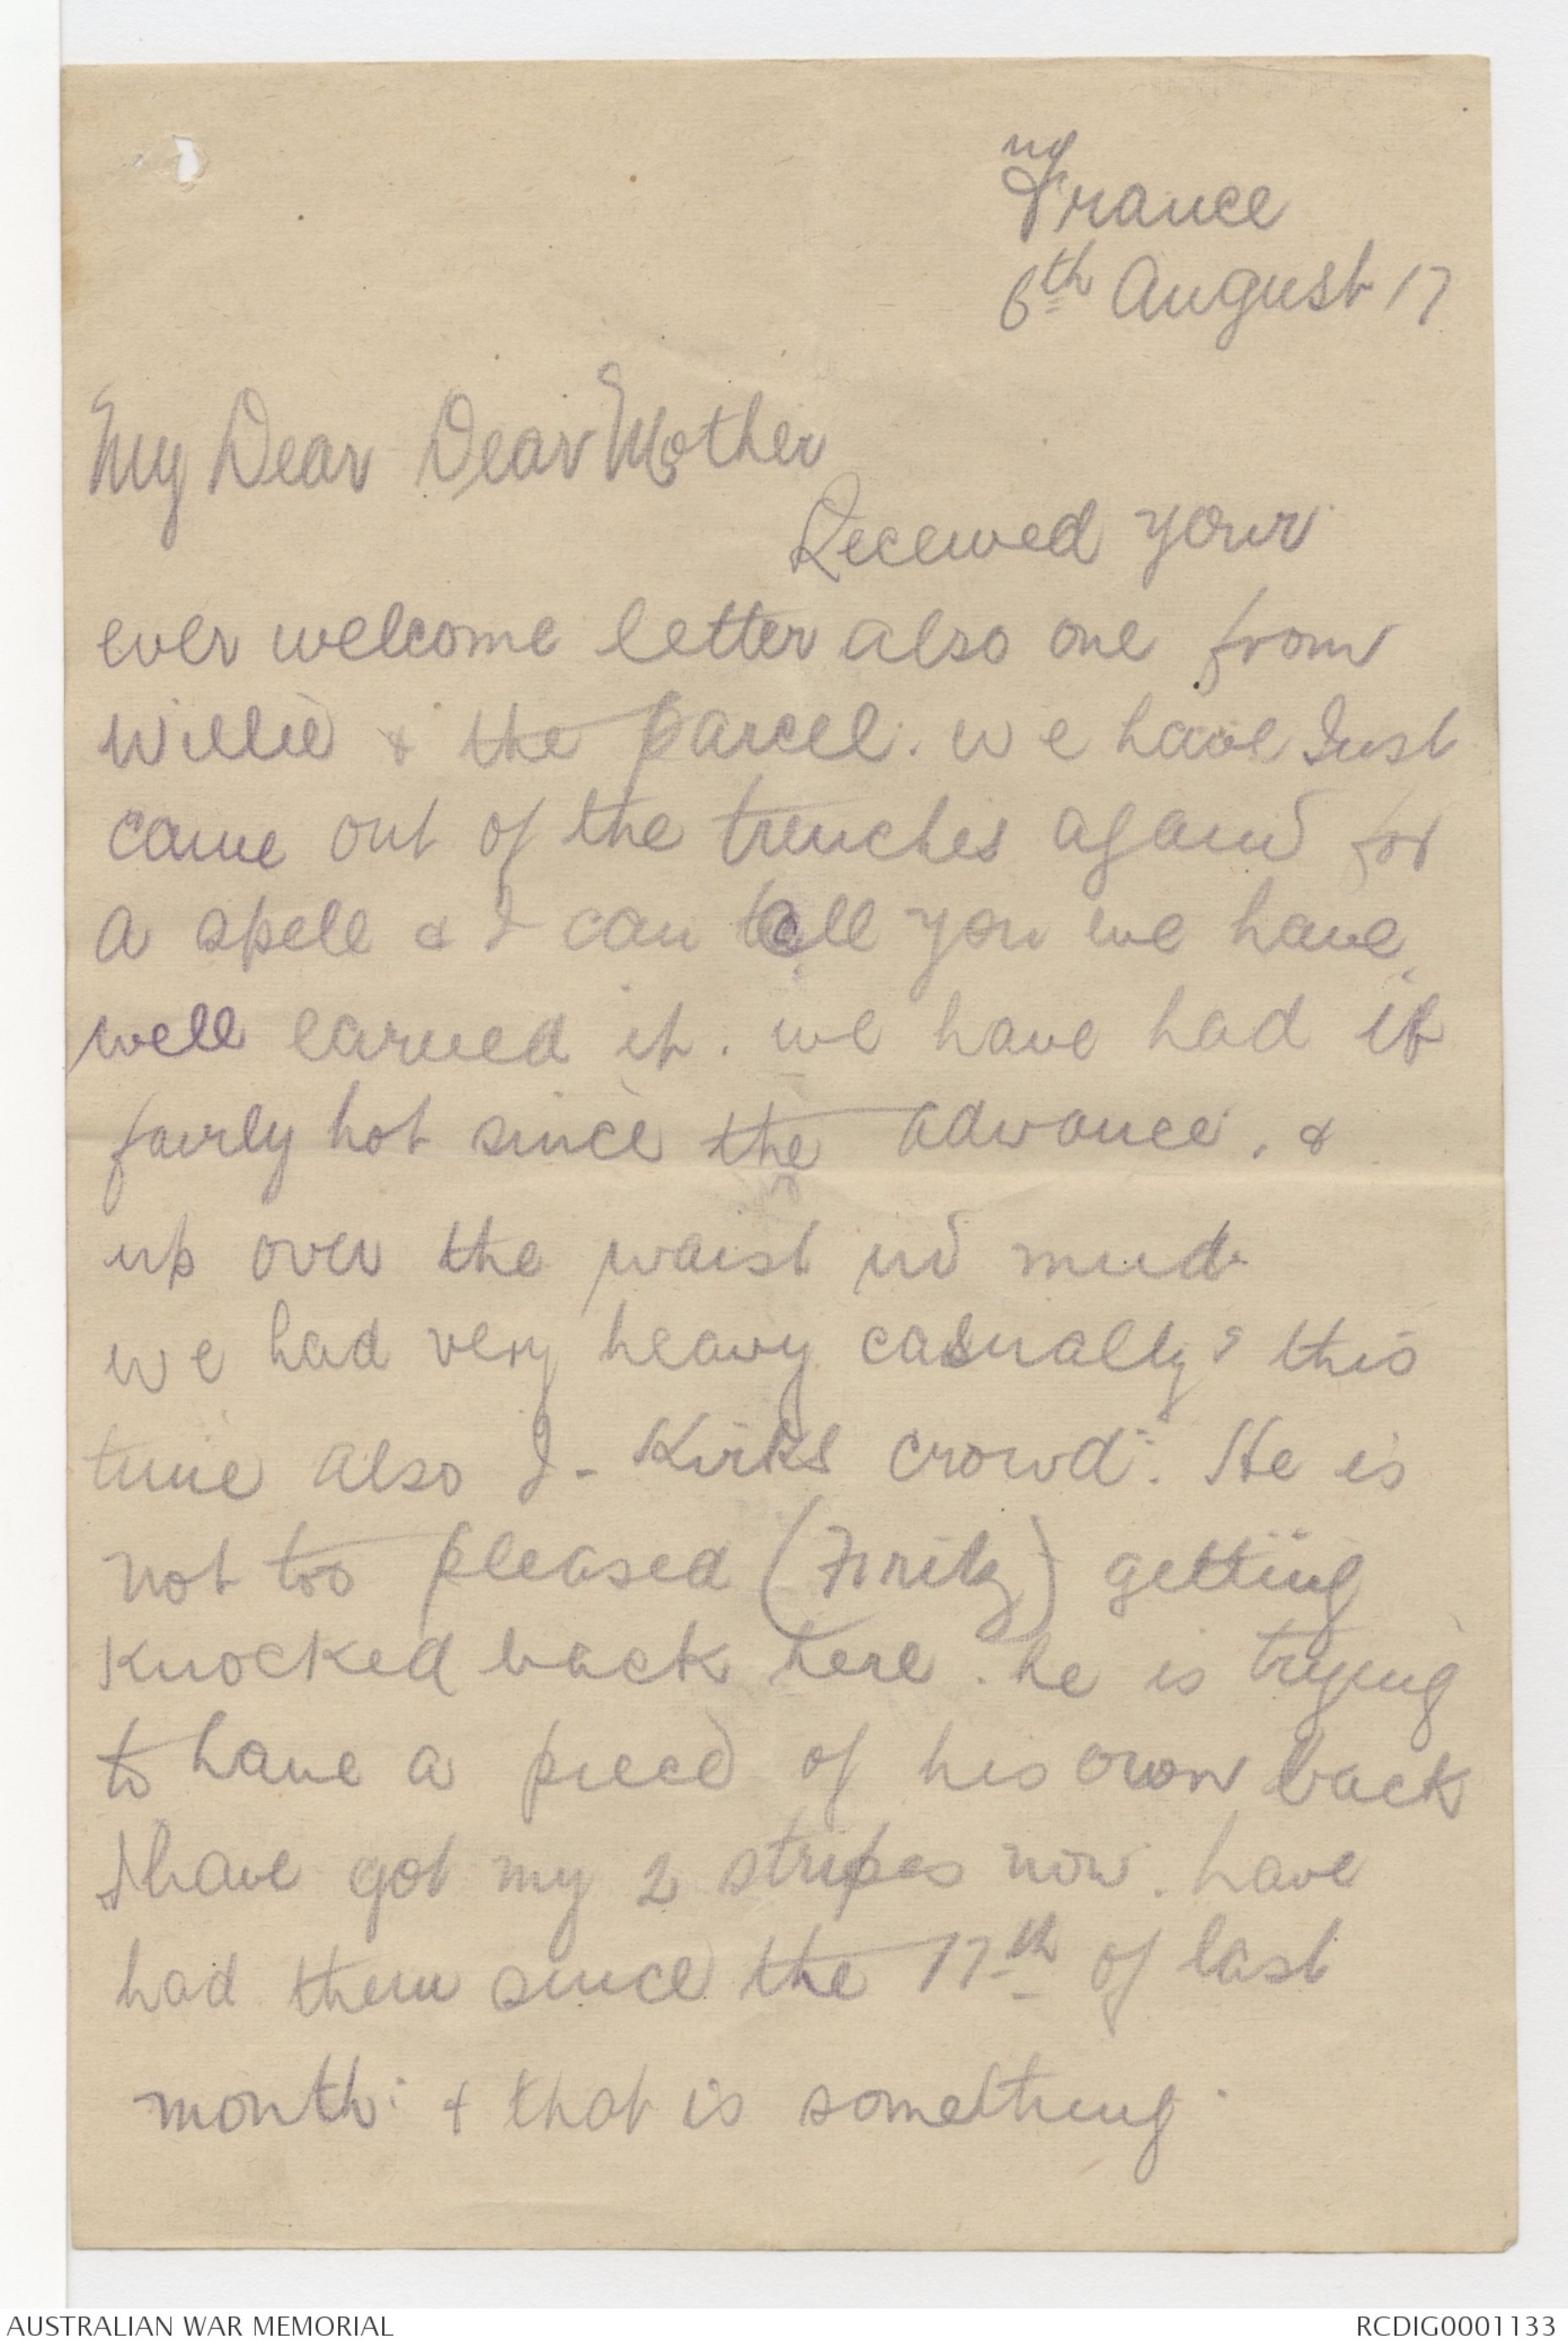 France
6th August 17
My Dear Dear Mother
Received your
ever welcome letter also one from
Willie & the parcel. we have Just
came out of the trenches again for
a spell & I can tell you we have
well earned it. we have had it
fairly hot since the advance. &
up over the waist in mud
we had very heavy casually's this
time also J - Kirks crowd. He is
not too pleased (Fritz) getting
knocked back here. he is trying
to have a piece of his own back
I have got my 2 stripes now. have
had them since the 17th of last
month. & that is something.
AUSTRALIAN WAR MEMORIAL
RCDIG0001133